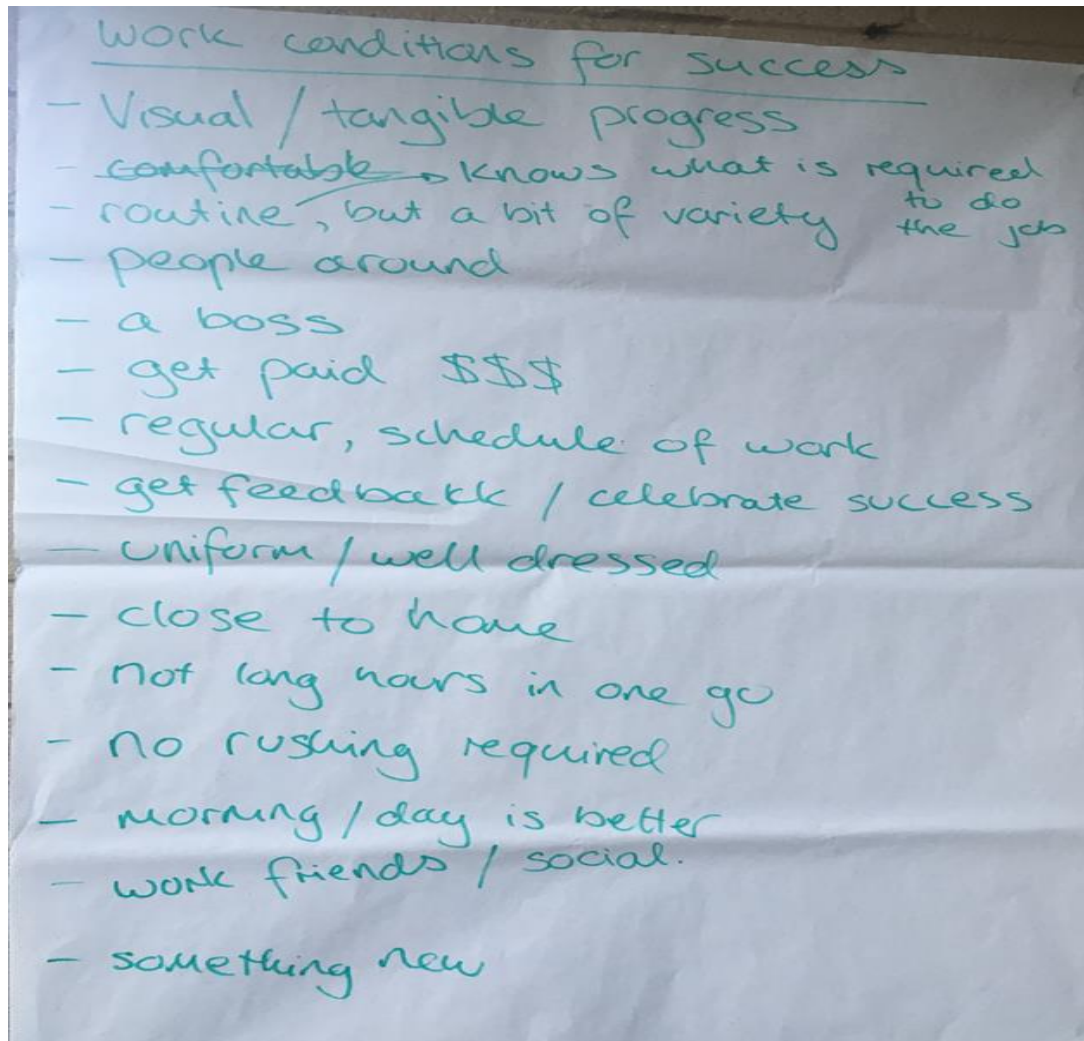 Work conditions for success
- Visual / tangible progress
- comfortable → Knows what is required
to do
the job
- routine, but a bit of variety
- people around
- a boss
- get paid $$$
- regular, schedule of work
- get feedback / celebrate success
- uniform / well dressed
- close to home
- not long hours in one go
- no rushing required
- morning / day is better
- work friends / social.
- something new